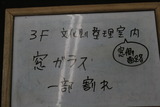 3F 文化財整理室内
窓ガラス
一部割れ